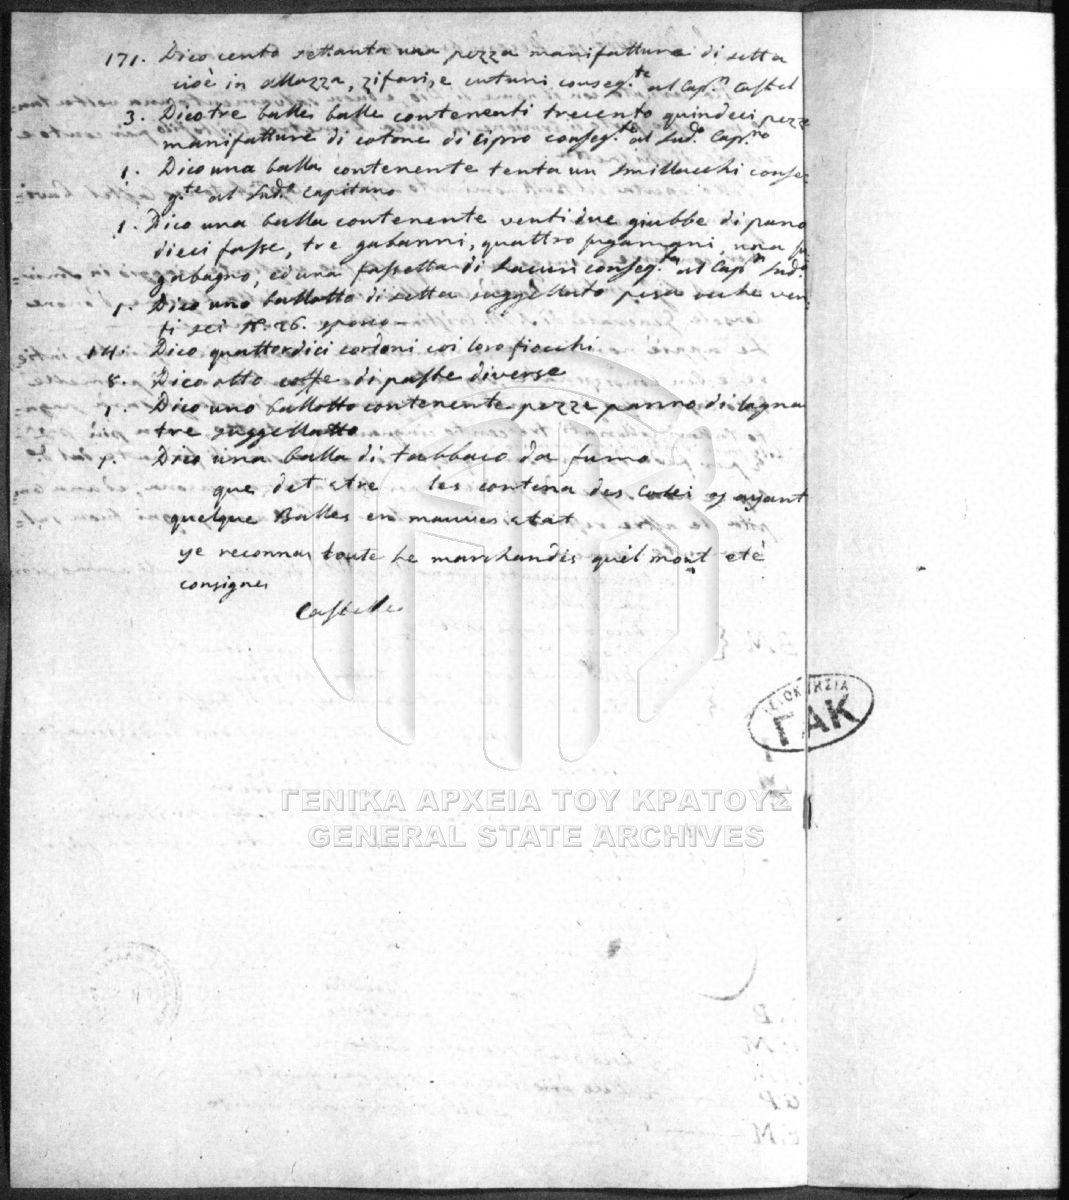 171. Dico cento settanta una pezza manifatture di setta
cioè in allazza, zifari, e cutuni conseg.te al Cap.n Castel
3. Dico tre balles balle contenenti trecento quindeci pezze
manifatture di cotone di Cipro conseg.te al Sud.o Cap.no
1. Dico una balla contenente tenta un Smillacchi conse
g.te al Sud.o Capitano
1. Dico una balla contenente venti due giubbe di pano
dieci fasse, tre gabanni, quattro una
ed una fassetta di conseg.ta al Cap.n Sud.o
1. Dico uno ballotto di setta suggellato pesa oche ven
ti sei N.o 26.
14. Dico quattordici cordoni coi loro fiocchi
8. Dico otto casse di paste diverse
1. Dico uno ballotto contenente pezze panno di lagna
tre suggellatto
1. Dico una balla di tabbaco da fumo
que det etre les contena des Colei ayant
quelque Balles en mauves etat
ye reconnas toute le marchandis quil mont eté
consignes
Castelle
ΙΔΙΟΚΤΗΣΙΑ
ΓΑΚ
ΓΕΝΙΚΑ ΑΡΧΕΙΑ ΤΟΥ ΚΡΑΤΟΥΣ
GENERAL STATE ARCHIVES